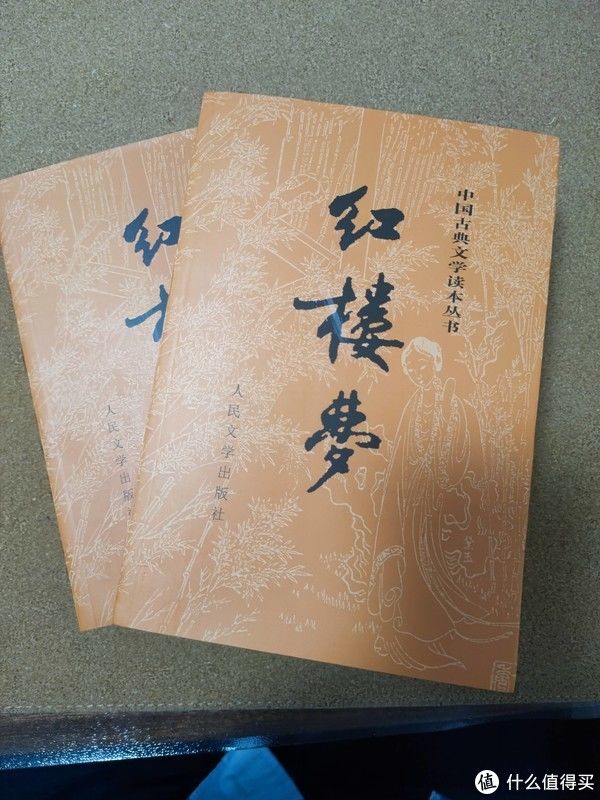 中国古典文学读本丛书
红楼梦
人民文学出版社
红
人民文学出版社
值 什么值得买